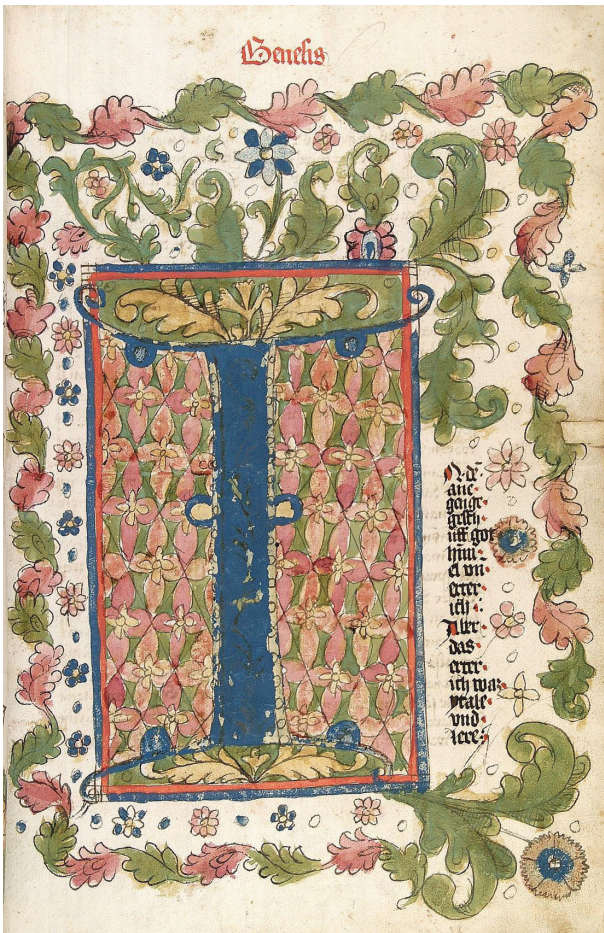 Genesis
I
N dē
ane
genge
gesch
uff got
himi
el vn
erter
ich
Aber
das
erter
ich waz
ytale
vnd
lere